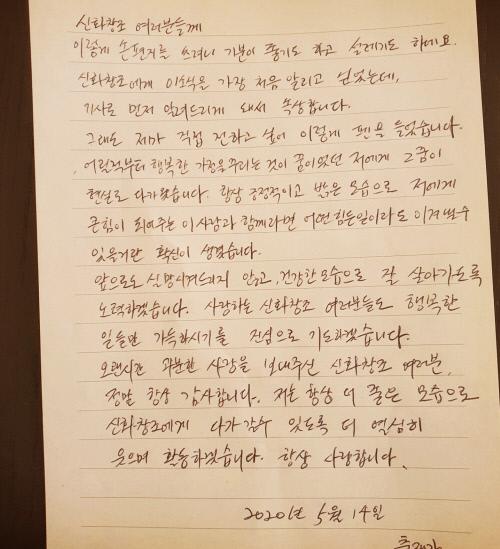 신화창조 여러분들께
이렇게 손편지를 쓰려니 기분이 좋기도 하고 설레기도 하네요.
신화창조에게 이소식을 가장 처음 알리고 싶었는데,
기사로 먼저 알려드리게 돼서 속상합니다.
그래도 제가 직접 전하고 싶어 이렇게 펜을 들었습니다.
어릴적부터 행복한 가정을 꾸리는 것이 꿈이었던 저에게 그꿈이
현실로 다가왔습니다. 항상 긍정적이고 밝은 모습으로 저에게
큰힘이 되어주는 이사람과 함께라면 어떤힘든일이라도 이겨낼수
있을거란 확신이 생겼습니다.
앞으로도 실망시켜드리지 않고, 건강한모습으로 잘 살아가도록
노력하겠습니다. 사랑하는 신화창조 여러분들도 행복한
일들만 가득하시기를 진심으로 기도하겠습니다.
오랜시간 과분한 사랑을 보내주신 신화창조 여러분,
정말 항상 감사합니다. 저는 항상 더 좋은 모습으로
신화창조에게 다가갈수 있도록 더 열심히
웃으며 활동하겠습니다. 항상 사랑합니다.
2020년 5월 14일